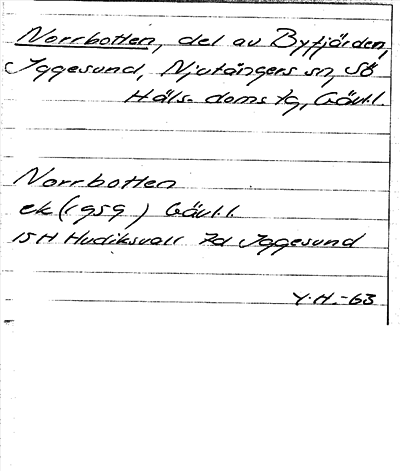 Norrbotten, del av Byfjärden,
Iggesund, Njutångers sn, Sö
Häls. doms tg, Gävl.
Norrbotten
ek (1959) Gävl.
15H Hudiksvall 7d Iggesund
Y.H.-63